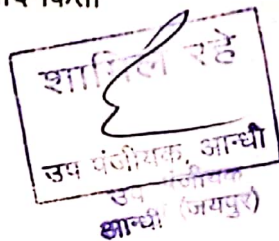 शामिल रहे
उप पंजीयक, आन्धी
उप पंजीयक
आन्धी (जयपुर)